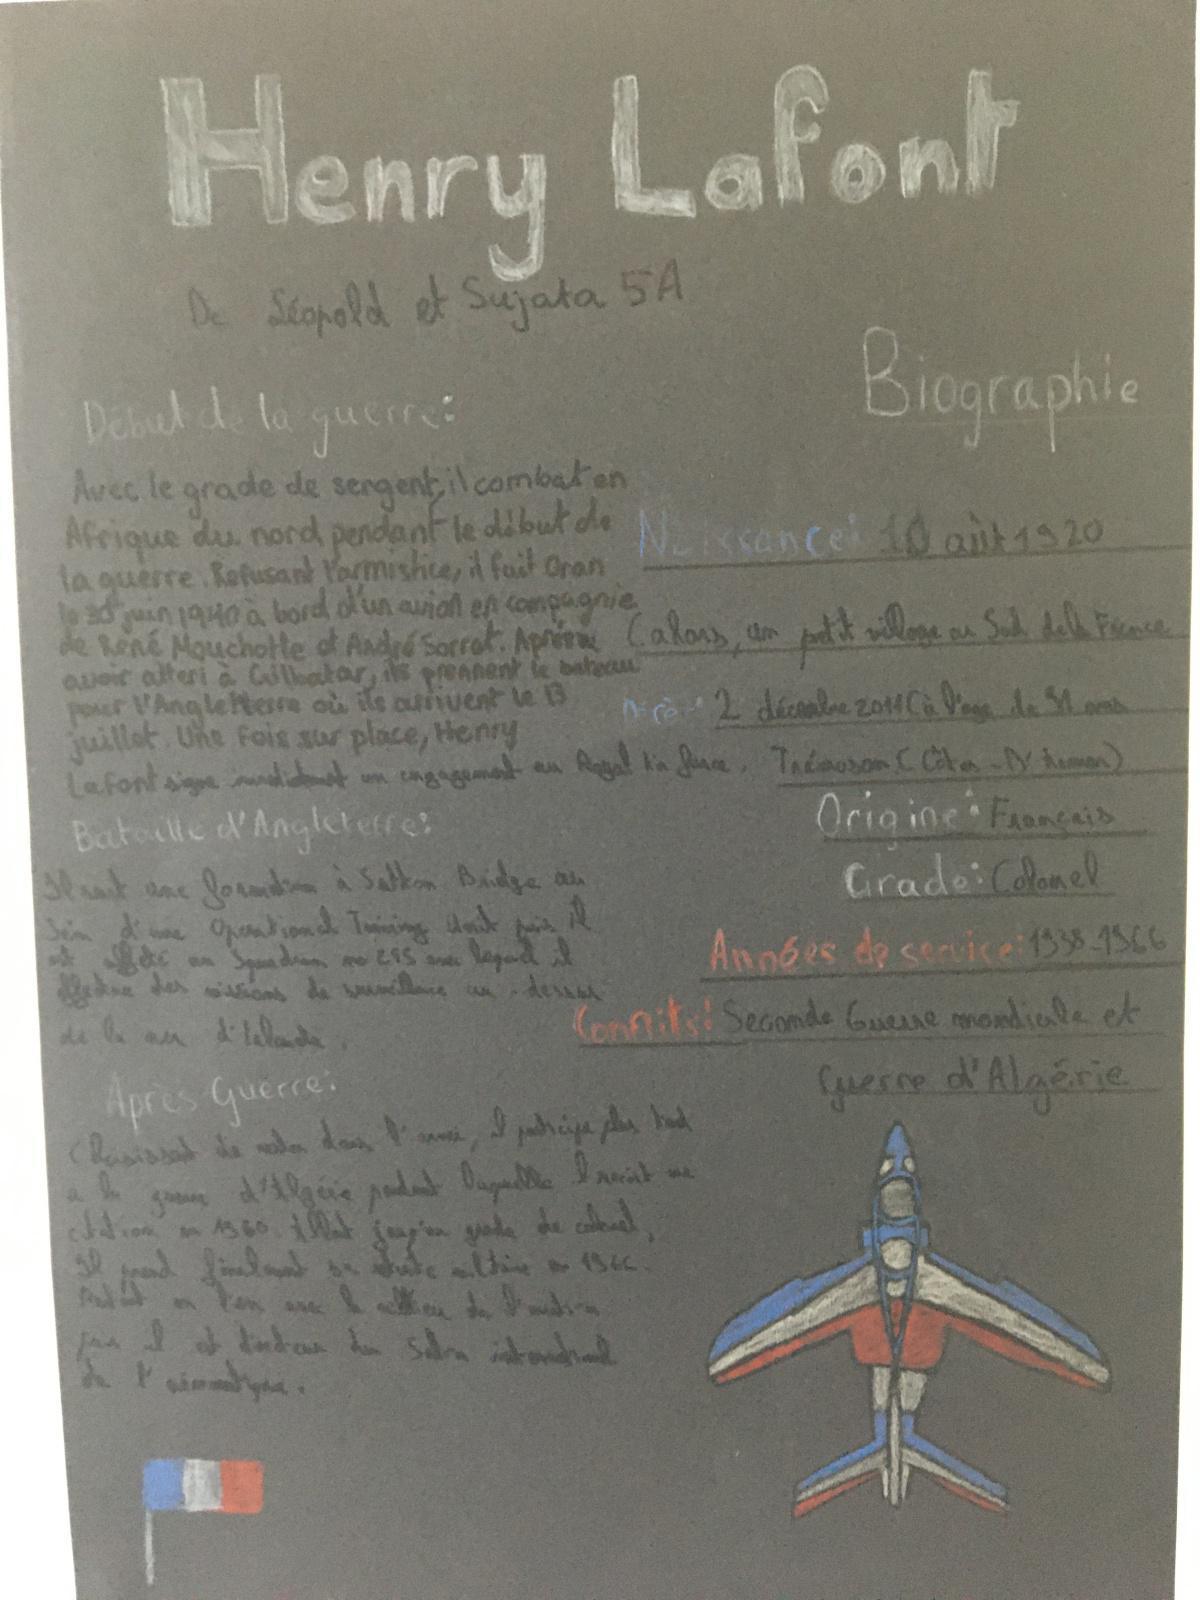 Henry Lafont
De Léopold et Sujata 5A
Biographie
Début de la guerre:
Avec le grade de sergent, il combat en
Afrique du nord pendant le début de
la guerre. Refusant l'armistice, il fuit Oran
le 30 juin 1940 à bord d'un avion en compagnie
de René Mouchotte et André Sorrot. Après
avoir atteri à Gilbatar, ils prennent le bateau
pour l'Angletterre où ils arrivent le 13
juillet. Une fois sur place, Henry
Lafont signe un engagement au Royal
Bataille d'Angleterre:
Il suit une formation à Sutton Bridge au
Sein d'une Operational Training Unit puis il
est affecté au Squadron no 245 avec lequel il
effectue des missions de surveillance au-dessus
de la mer d'Irlande.
Après Guerre:
Choisissant de rester dans l'armée, il participe plus tard
a la guerre d'Algérie pendant laquelle il reçoit une
citation en 1960. jusqu'au grade de colonel,
Il prend finalement sa militaire en 1966.
de l'
puis il est directeur du Salon international
de l'aéronautique.
Naissance: 10 aôut 1920
Cahors, un petit village au Sud de la France
2 décembre 2011 (à l'age de 91 ans
Trémuson (Côtes-D'Armor)
Origine: Français
Grade: Colonel
Années de service: 1938-1966
Conflits: Seconde Guerre mondiale et
Guerre d'Algérie